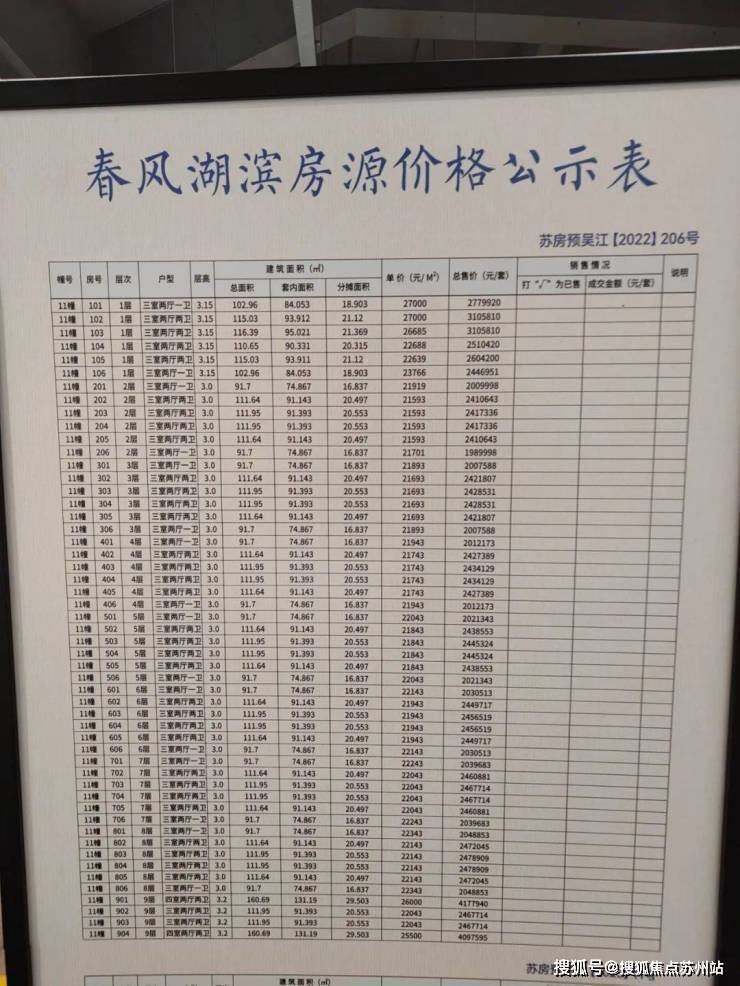 春风湖滨房源价格公示表
苏房预吴江【2022】206号
幢号 房号 层次 户型 层高 建筑面积（㎡） 单价（元/M²） 总售价（元/套） 销售情况 说明
总面积 套内面积 分摊面积 打“√”为已售 成交金额（元/套）
11幢 101 1层 三室两厅一卫 3.15 102.96 84.053 18.903 27000 2779920
11幢 102 1层 三室两厅两卫 3.15 115.03 93.912 21.12 27000 3105810
11幢 103 1层 三室两厅两卫 3.15 116.39 95.021 21.369 26685 3105810
11幢 104 1层 三室两厅两卫 3.15 110.65 90.331 20.315 22688 2510420
11幢 105 1层 三室两厅两卫 3.15 115.03 93.911 21.12 22639 2604200
11幢 106 1层 三室两厅一卫 3.15 102.96 84.053 18.903 23766 2446951
11幢 201 2层 三室两厅一卫 3.0 91.7 74.867 16.837 21919 2009998
11幢 202 2层 三室两厅两卫 3.0 111.64 91.143 20.497 21593 2410643
11幢 203 2层 三室两厅两卫 3.0 111.95 91.393 20.553 21593 2417336
11幢 204 2层 三室两厅两卫 3.0 111.95 91.393 20.553 21593 2417336
11幢 205 2层 三室两厅两卫 3.0 111.64 91.143 20.497 21593 2410643
11幢 206 2层 三室两厅一卫 3.0 91.7 74.867 16.837 21701 1989998
11幢 301 3层 三室两厅一卫 3.0 91.7 74.867 16.837 21893 2007588
11幢 302 3层 三室两厅两卫 3.0 111.64 91.143 20.497 21693 2421807
11幢 303 3层 三室两厅两卫 3.0 111.95 91.393 20.553 21693 2428531
11幢 304 3层 三室两厅两卫 3.0 111.95 91.393 20.553 21693 2428531
11幢 305 3层 三室两厅两卫 3.0 111.64 91.143 20.497 21693 2421807
11幢 306 3层 三室两厅一卫 3.0 91.7 74.867 16.837 21893 2007588
11幢 401 4层 三室两厅一卫 3.0 91.7 74.867 16.837 21943 2012173
11幢 402 4层 三室两厅两卫 3.0 111.64 91.143 20.497 21743 2427389
11幢 403 4层 三室两厅两卫 3.0 111.95 91.393 20.553 21743 2434129
11幢 404 4层 三室两厅两卫 3.0 111.95 91.393 20.553 21743 2434129
11幢 405 4层 三室两厅两卫 3.0 111.64 91.143 20.497 21743 2427389
11幢 406 4层 三室两厅一卫 3.0 91.7 74.867 16.837 21943 2012173
11幢 501 5层 三室两厅一卫 3.0 91.7 74.867 16.837 22043 2021343
11幢 502 5层 三室两厅两卫 3.0 111.64 91.143 20.497 21843 2438553
11幢 503 5层 三室两厅两卫 3.0 111.95 91.393 20.553 21843 2445324
11幢 504 5层 三室两厅两卫 3.0 111.95 91.393 20.553 21843 2445324
11幢 505 5层 三室两厅两卫 3.0 111.64 91.143 20.497 21843 2438553
11幢 506 5层 三室两厅一卫 3.0 91.7 74.867 16.837 22043 2021343
11幢 601 6层 三室两厅一卫 3.0 91.7 74.867 16.837 22143 2030513
11幢 602 6层 三室两厅两卫 3.0 111.64 91.143 20.497 21943 2449717
11幢 603 6层 三室两厅两卫 3.0 111.95 91.393 20.553 21943 2456519
11幢 604 6层 三室两厅两卫 3.0 111.95 91.393 20.553 21943 2456519
11幢 605 6层 三室两厅两卫 3.0 111.64 91.143 20.497 21943 2449717
11幢 606 6层 三室两厅一卫 3.0 91.7 74.867 16.837 22143 2030513
11幢 701 7层 三室两厅一卫 3.0 91.7 74.867 16.837 22243 2039683
11幢 702 7层 三室两厅两卫 3.0 111.64 91.143 20.497 22043 2460881
11幢 703 7层 三室两厅两卫 3.0 111.95 91.393 20.553 22043 2467714
11幢 704 7层 三室两厅两卫 3.0 111.95 91.393 20.553 22043 2467714
11幢 705 7层 三室两厅两卫 3.0 111.64 91.143 20.497 22043 2460881
11幢 706 7层 三室两厅一卫 3.0 91.7 74.867 16.837 22243 2039683
11幢 801 8层 三室两厅一卫 3.0 91.7 74.867 16.837 22343 2048853
11幢 802 8层 三室两厅两卫 3.0 111.64 91.143 20.497 22143 2472045
11幢 803 8层 三室两厅两卫 3.0 111.95 91.393 20.553 22143 2478909
11幢 804 8层 三室两厅两卫 3.0 111.95 91.393 20.553 22143 2478909
11幢 805 8层 三室两厅两卫 3.0 111.64 91.143 20.497 22143 2472045
11幢 806 8层 三室两厅一卫 3.0 91.7 74.867 16.837 22343 2048853
11幢 901 9层 四室两厅两卫 3.2 160.69 131.19 29.503 26000 4177940
11幢 902 9层 三室两厅两卫 3.2 111.95 91.393 20.553 22043 2467714
11幢 903 9层 三室两厅两卫 3.2 111.95 91.393 20.553 22043 2467714
11幢 904 9层 四室两厅两卫 3.2 160.69 131.19 29.503 25500 4097595
苏房预吴江
建筑面积（㎡）
搜狐号@搜狐焦点苏州站